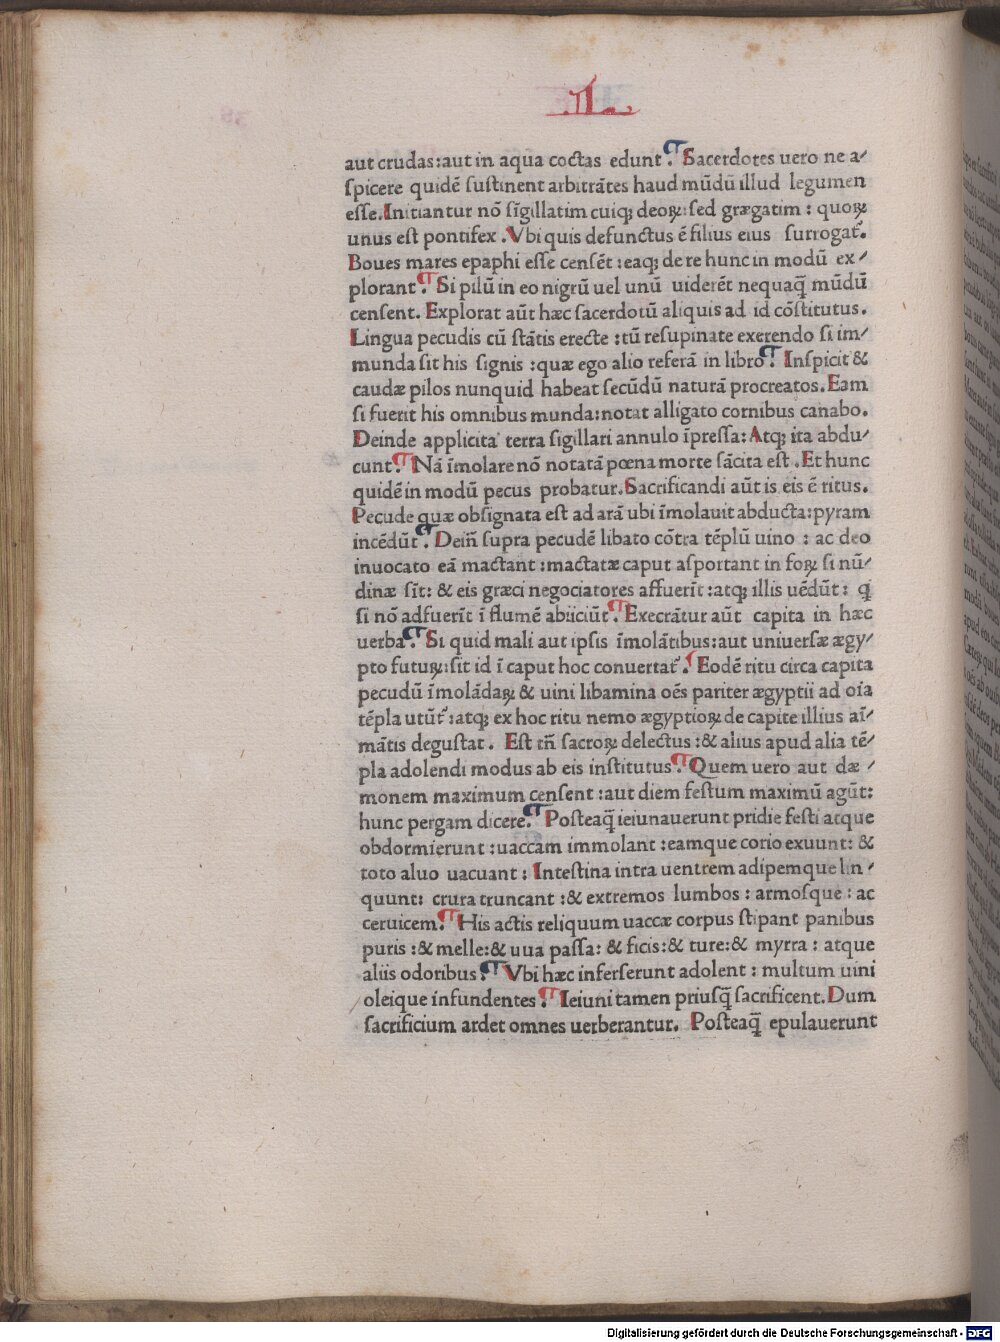 .II.
aut crudas:aut in aqua coctas edunt. ¶ Sacerdotes uero ne a⸗
spicere quidē sustinent arbitrātes haud mūdū illud legumen
esse.Initiantur nō sīgillatim cuiq; deoꝝ:sed grægatim : quoꝝ
unus est pontifex .Vbi quis defunctus ē filius eius surrogat᷑.
Boues mares epaphi esse censēt :eaq; de re hunc in modū ex⸗
plorant. ¶ Si pilū in eo nigrū uel unū uiderēt nequaq̄ mūdū
censent. Explorat aūt hæc sacerdotū aliquis ad id cōstitutus.
Lingua pecudis cū stātis erecte :tū resupinate exerendo si im⸗
munda sit his signis :quæ ego alio referā in libro. ¶ Inspicit &
caudæ pilos nunquid habeat secūdū naturā procreatos. Eam
si fuerit his omnibus munda:notat alligato cornibus canabo.
Deinde applicita terra sigillari annulo īpressa: Atq; ita abdu⸗
cunt. ¶ Nā īmolare nō notatā pœna morte sācita est .Et hunc
quidē in modū pecus probatur.Sacrificandi aūt is eis ē ritus.
Pecude quæ obsignata est ad arā ubi īmolauit abducta:pyram
incēdūt. ¶ Deiñ supra pecudē libato cōtra tēplū uino : ac deo
inuocato eā mactant :mactatæ caput asportant in foꝝ si nū⸗
dinæ sīt: & eis græci negociatores affuerīt :atq; illis uēdūt : q̄
si nō adfuerīt ī flumē abiiciūt. ¶ Execrātur aūt capita in hæc
uerba. ¶ Si quid mali aut ipsis īmolātibus:aut uniuersæ ægy⸗
pto futuꝝ:sit id ī caput hoc conuertat᷑. ¶ Eodē ritu circa capita
pecudū īmolādaꝝ & uini libamina oēs pariter ægyptii ad oīa
tēpla utūt᷑ :atq; ex hoc ritu nemo ægyptioꝝ de capite illius aī⸗
mātis degustat. Est tñ sacroꝝ delectus :& alius apud alia tē⸗
pla adolendi modus ab eis institutus. ¶ Quem uero aut dæ⸗
monem maximum censent :aut diem festum maximū agūt:
hunc pergam dicere. ¶ Posteaq̄ ieiunauerunt pridie festi atque
obdormierunt :uaccam immolant :eamque corio exuunt: &
toto aluo uacuant : Intestina intra uentrem adipemque lin⸗
quunt: crura truncant :& extremos lumbos : armosque : ac
ceruicem. ¶ His actis reliquum uaccæ corpus stipant panibus
puris :& melle:& uua passa: & ficis:& ture:& myrra : atque
aliis odoribus. ¶ Vbi hæc inferserunt adolent : multum uini
oleique infundentes. ¶ Ieiuni tamen priusq̄ sacrificent. Dum
sacrificium ardet omnes uerberantur. Posteaq̄ epulauerunt
Digitalisierung gefördert durch die Deutsche Forschungsgemeinschaft - DFG